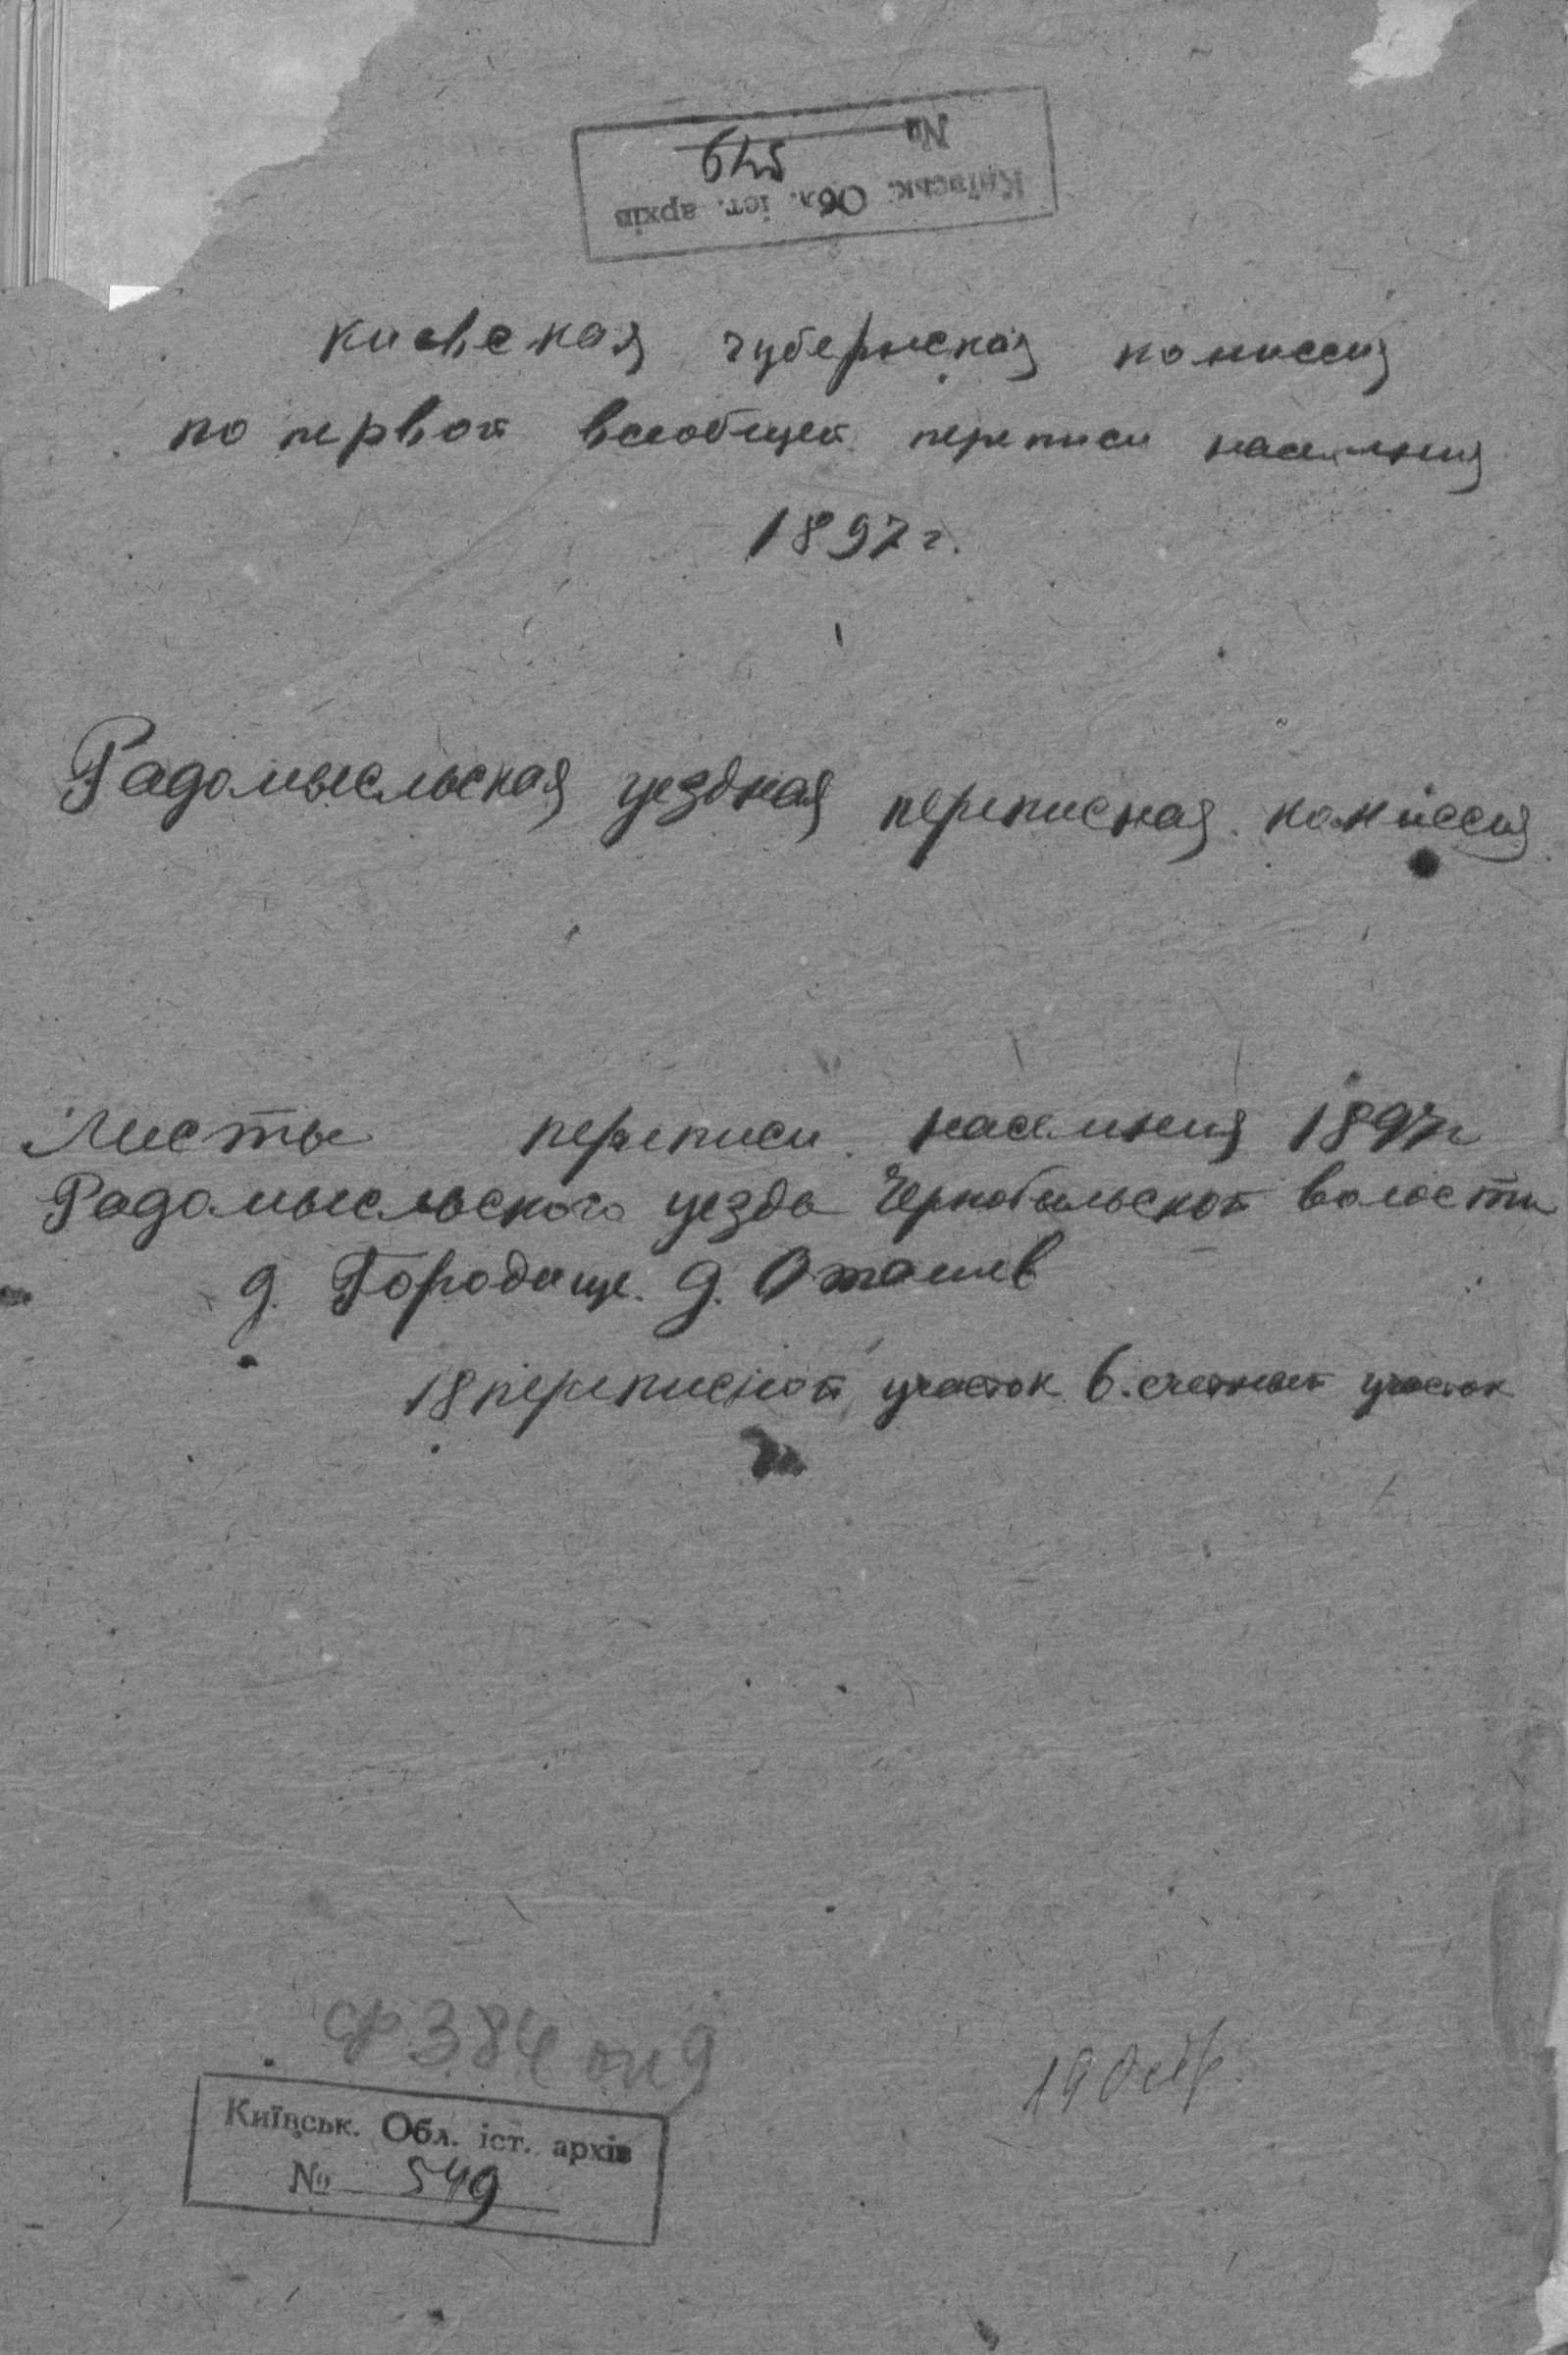 Київськ. Обл. іст. архів
№ 549
Киевская губернская комиссия
по первой всеобщей переписи населения
1897 г.
Радомысльская уездная переписная комиссия
Листы переписи населения 1897 г
Радомысльского уезда Чернобыльской волости
д. Городище. д. Оташев
18 переписной участок 6. счетный участок
ф 384 оп 9
Київськ. Обл. іст. архів
№ 549